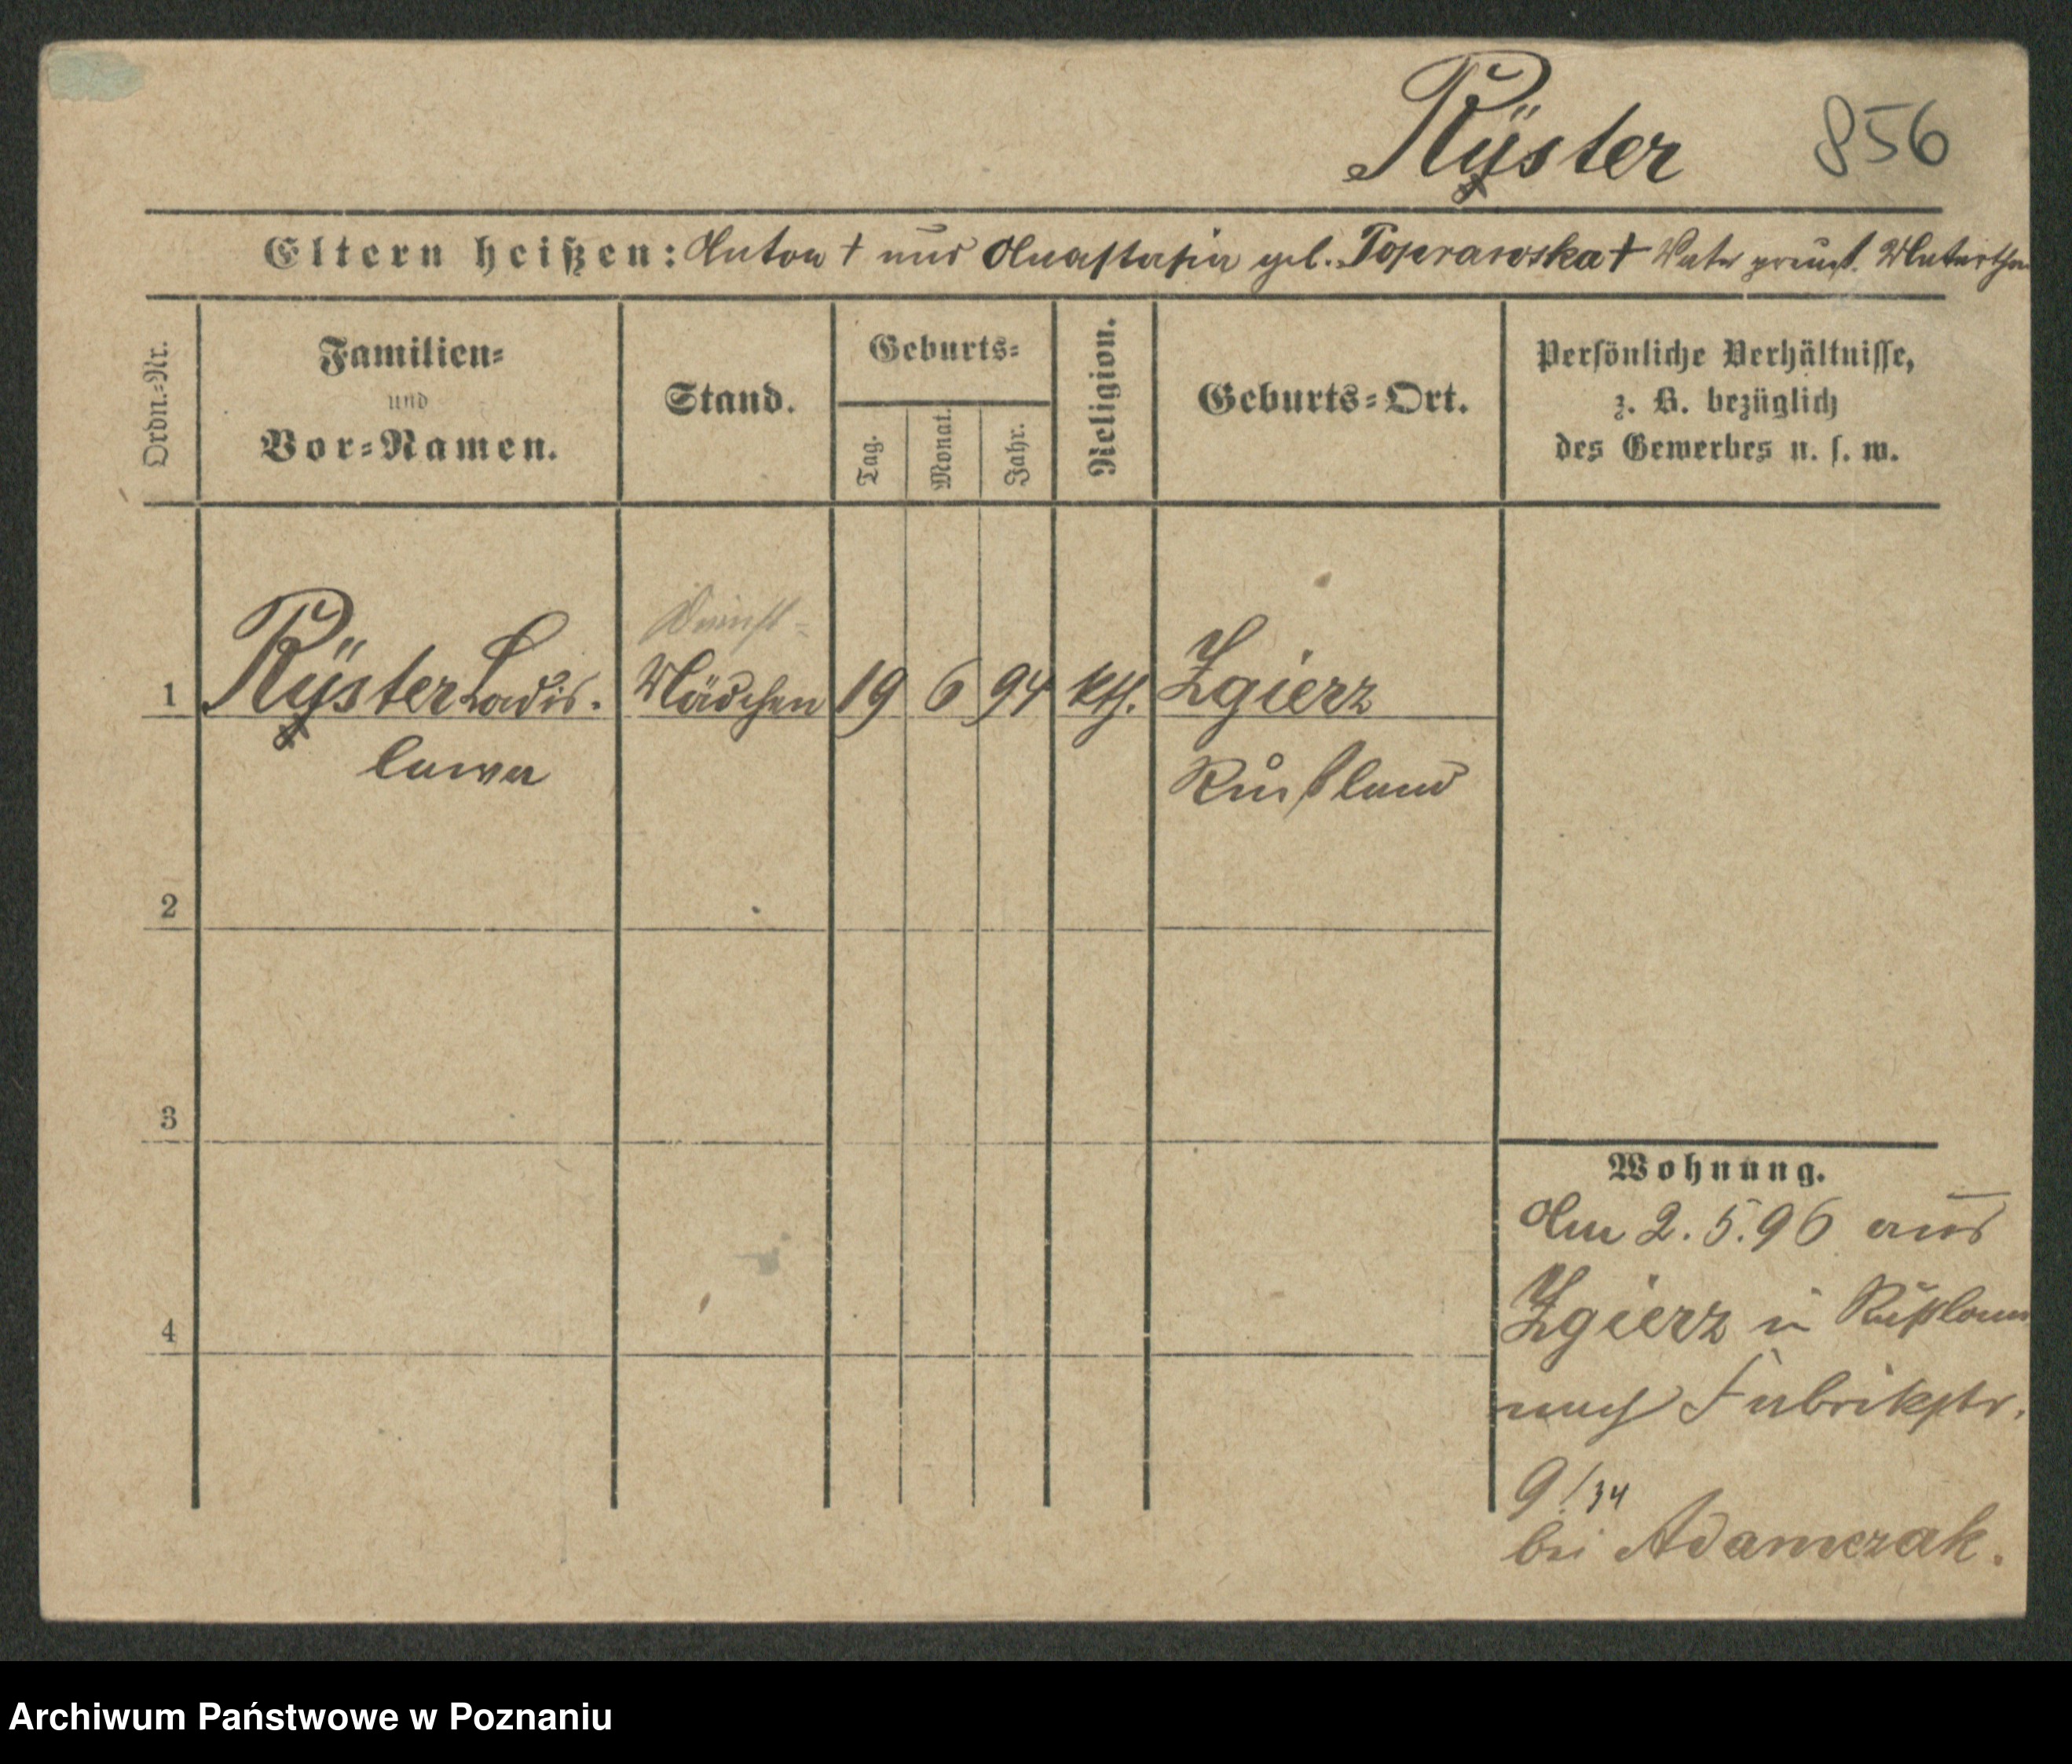 Rÿster 856
Eltern heißen: Anton † und Anastasia geb. Toprawska † Vater preuß.
Ordn.-Nr.
Familien-
und
Vor-Namen.
Stand.
Geburts-
Tag.
Monat.
Jahr.
Religion.
Geburts-Ort.
Persönliche Verhältnisse,
z. B. bezüglich
des Gewerbes u. s. w.
Dienst-
1 Rÿster Ladis. Mädchen 19 6 94 kth. Zgierz
lawa Rußland
2
3
4
Wohnung.
Am 2.5.96 aus
Zgierz in Rußland
nach Fabrikstr.
9/34
bei Adamczak.
Archiwum Państwowe w Poznaniu